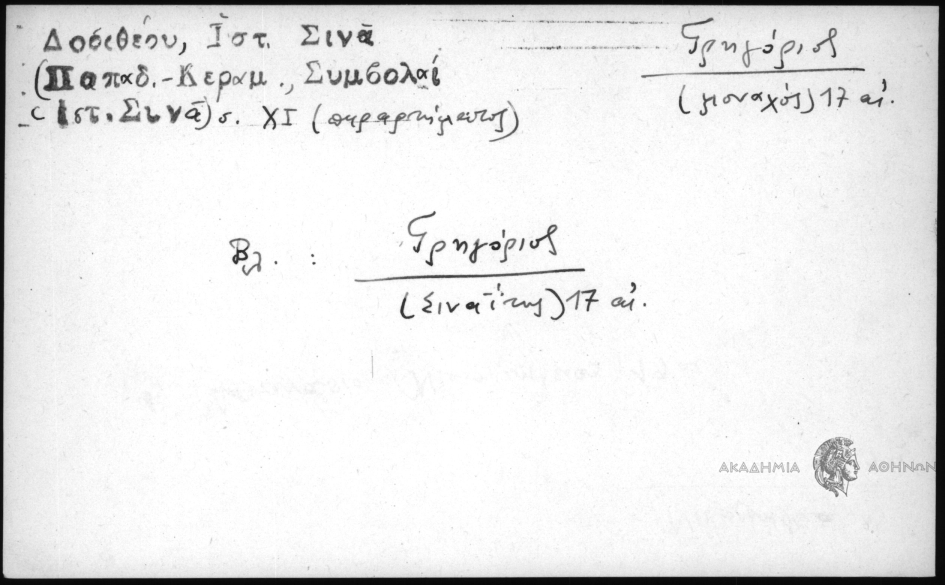 Δοσιθέου, Ἱστ. Σινᾶ
(Παπαδ.-Κεραμ., Συμβολαί
Ἱστ. Σινᾶ) σ. XI (παραρτήματος)
Γρηγόριος
(μοναχός) 17 αἰ.
Βλ. : Γρηγόριος
(Σιναΐτης) 17 αἰ.
ΑΚΑΔΗΜΙΑ ΑΘΗΝΩΝ